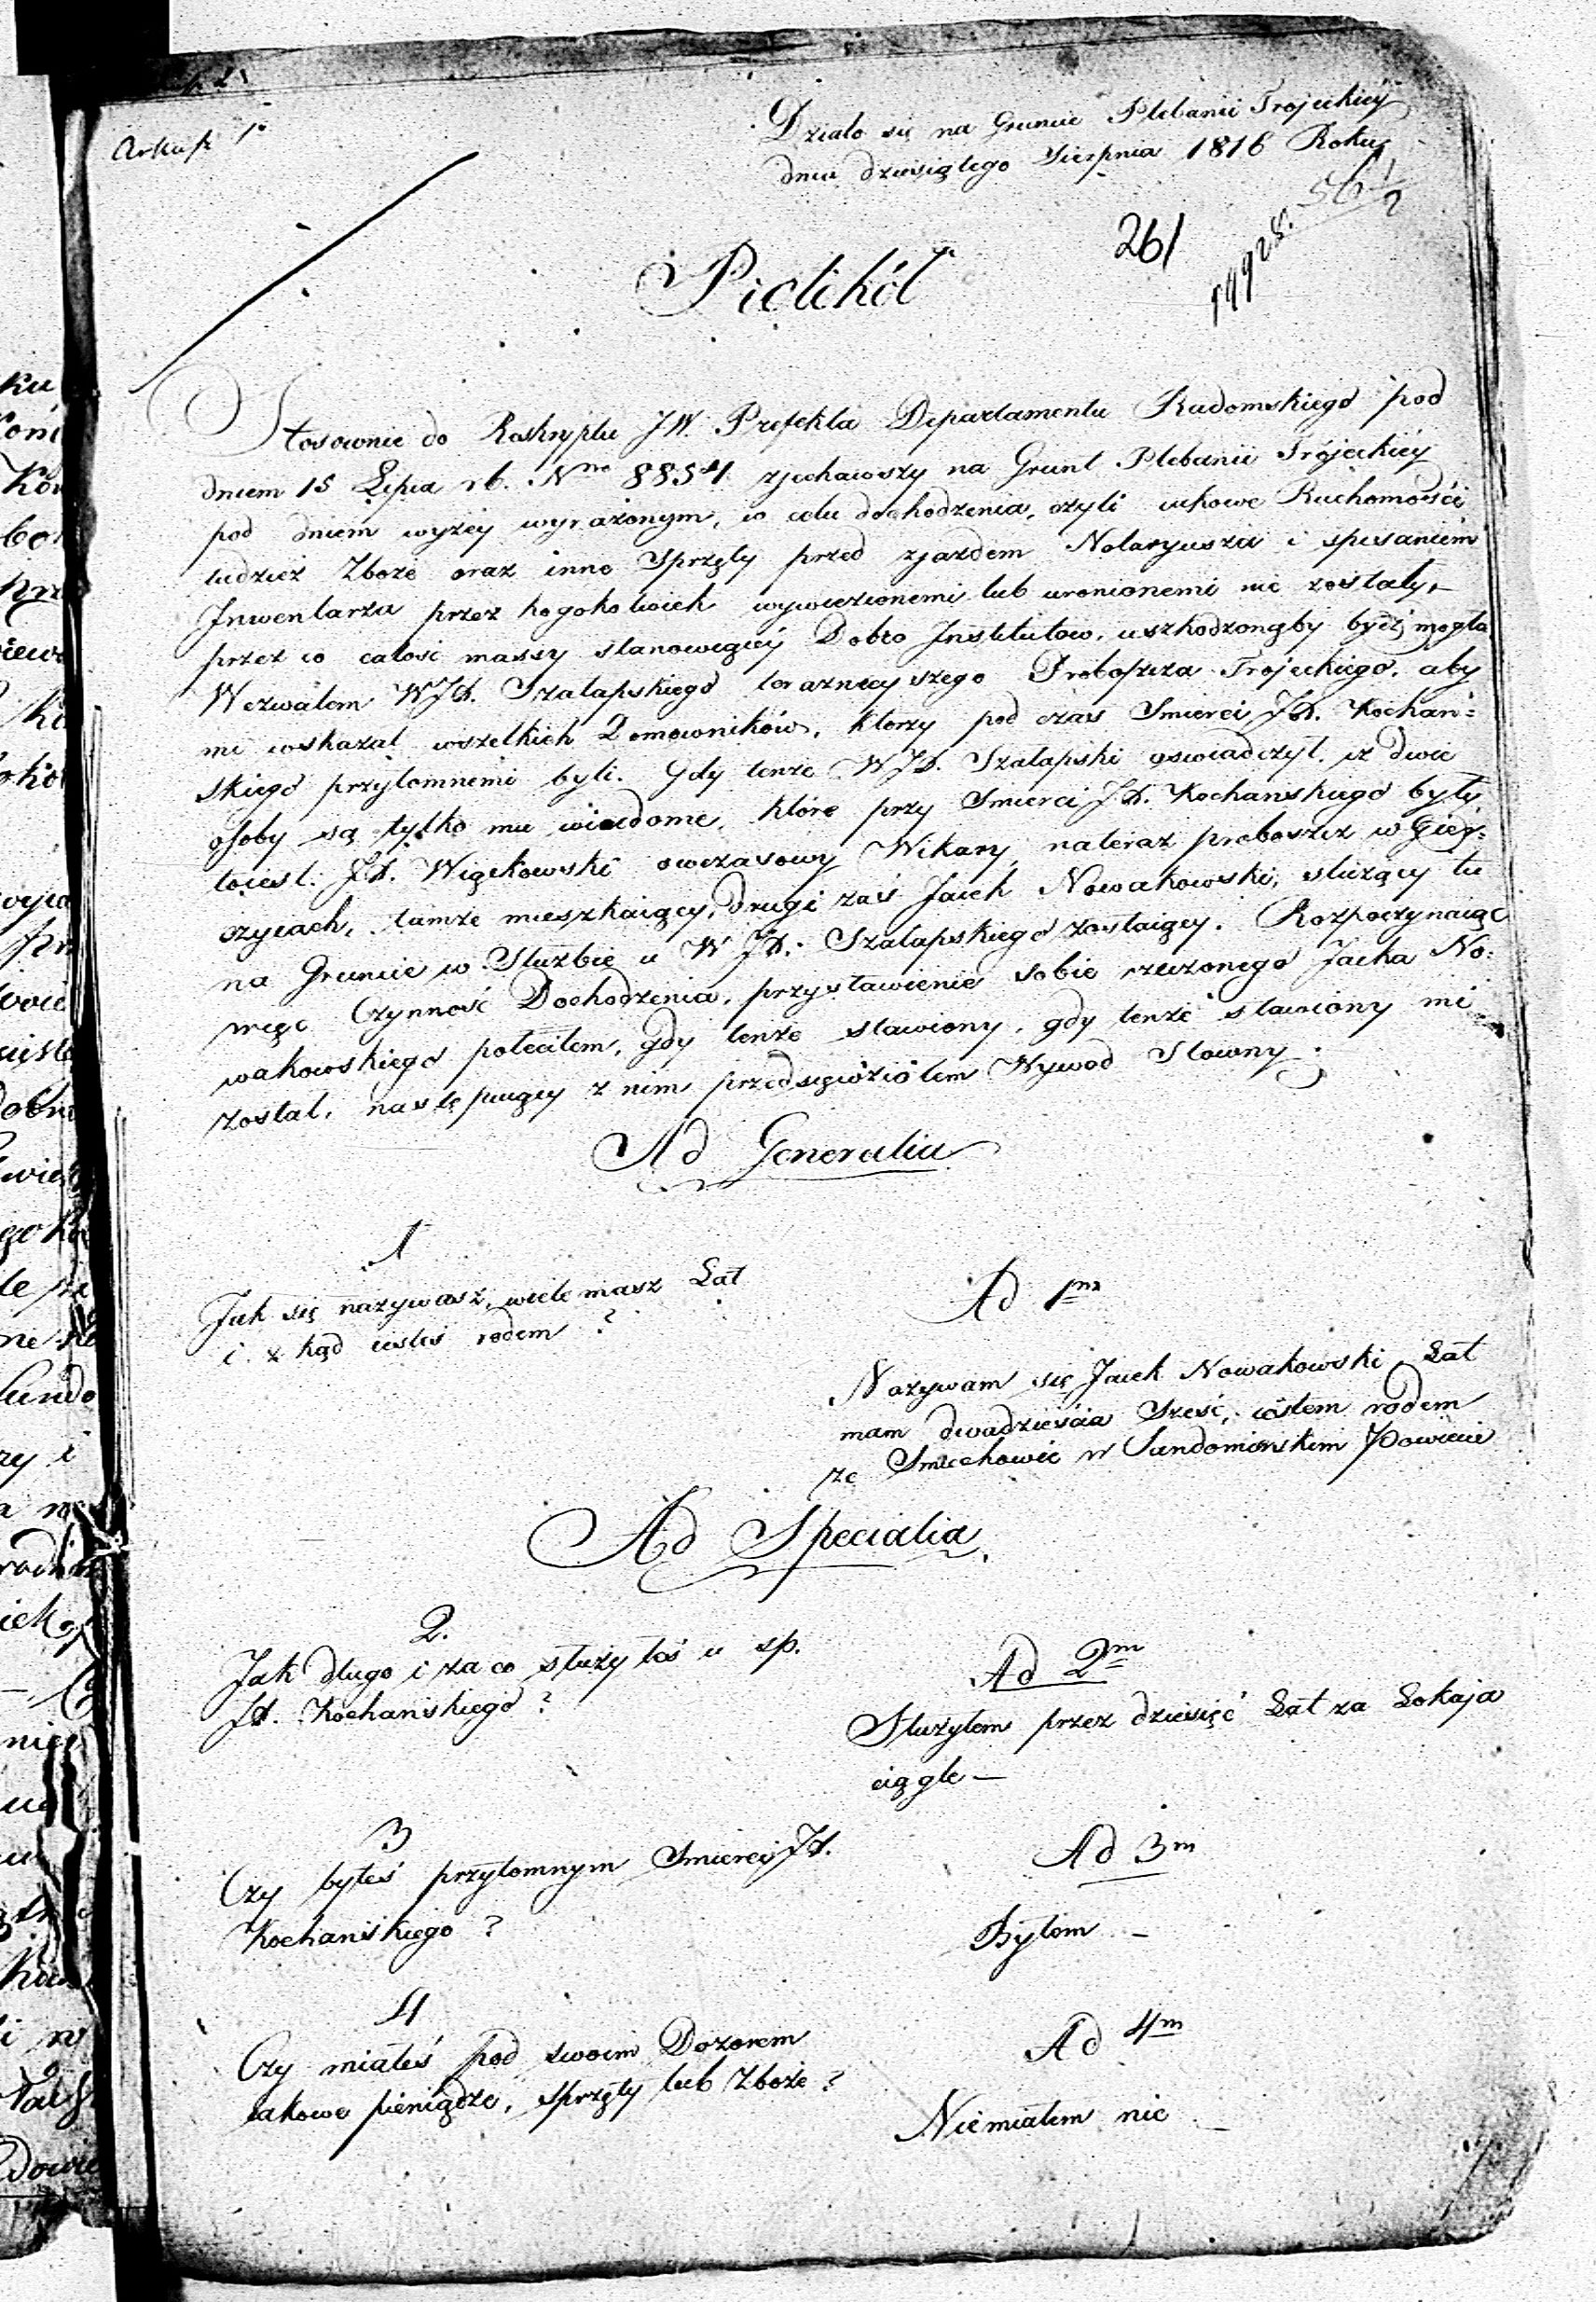 Arkusz 1o
Działo się na Gruncie Plebanii Trojeckiey
dnia dziesiątego Sierpnia 1816 Roku
56 1/2
261
Protokół
Stosownie do Reskryptu JW. Prefekta Departamentu Radomskiego pod
dniem 15 Lipca rb. Nro 8854 zjechawszy na Grunt Plebanii Trojeckiey
pod dniem wyżey wyrażonym, w celu dochodzenia, czyli iakowe Ruchomości
tudzież Zboże oraz inne Sprzęty przed zjazdem Notaryusza i spisaniem
Inwentarza przez kogokolwiek wywiezionemi lub uronionemi nie zostały,
przez co całość massy stanowiącey Dobro Institutow, uszkodzonąby bydź mogła
Wezwałem WJX. Szalapskiego teraznieyszego Proboszcza Trojeckiego, aby
mi wskazał wszelkich Domowników, ktorzy pod czas Smierci JX. Kochań=
skiego przytomnemi byli. Gdy tenże WJX. Szalapski oswiadczył, iz dwie
osoby są tylko mu wiadome, które przy Smierci JX. Kochanskiego były,
toiest. JX. Więckowski owczasowy Wikary, nateraz proboszcz w Gieł=
czycach, tamże mieszkaiący, drugi zaś Jacek Nowakowski, służący tu
na Gruncie w Służbie u WJX. Szalapskiego zostaiący. Rozpoczynaiąc
więc Czynność Dochodzenia, przystawienie sobie rzeczonego Jacka No=
wakowskiego poleciłem, gdy tenże stawiony, gdy tenże stawiony mi
został, następuiący z nim przedsięwziołem Wywod Słowny.
Ad Generalia
1
Jak się nazywasz, wiele masz Lat
i z kąd iesteś rodem?
Ad 1m
Nazywam się Jacek Nowakowski Lat
mam dwadzieścia Sześć, iestem rodem
ze Smiechowic w Sandomirskim Powiecie
Ad Specialia.
2.
Jak długo i za co służyłoś u sp.
JX. Kochańskiego?
Ad 2m
Służyłem przez dziesięć Lat za Lokaja
ciągle —
3
Czy byłeś przytomnym Smierci JX.
Kochańskiego?
Ad 3m
Byłem —
4
Czy miałeś pod swoim Dozorem
iakowe pieniądze, sprzęty lub Zboże?
Ad 4m
Niemiałem nic —